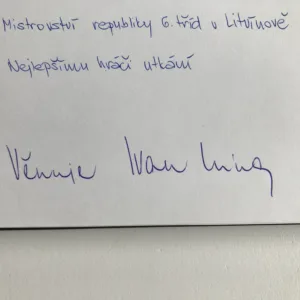 Mistrovství republiky 6. tříd v Litvínově
Nejlepšímu hráči utkání
Věnuje Ivan